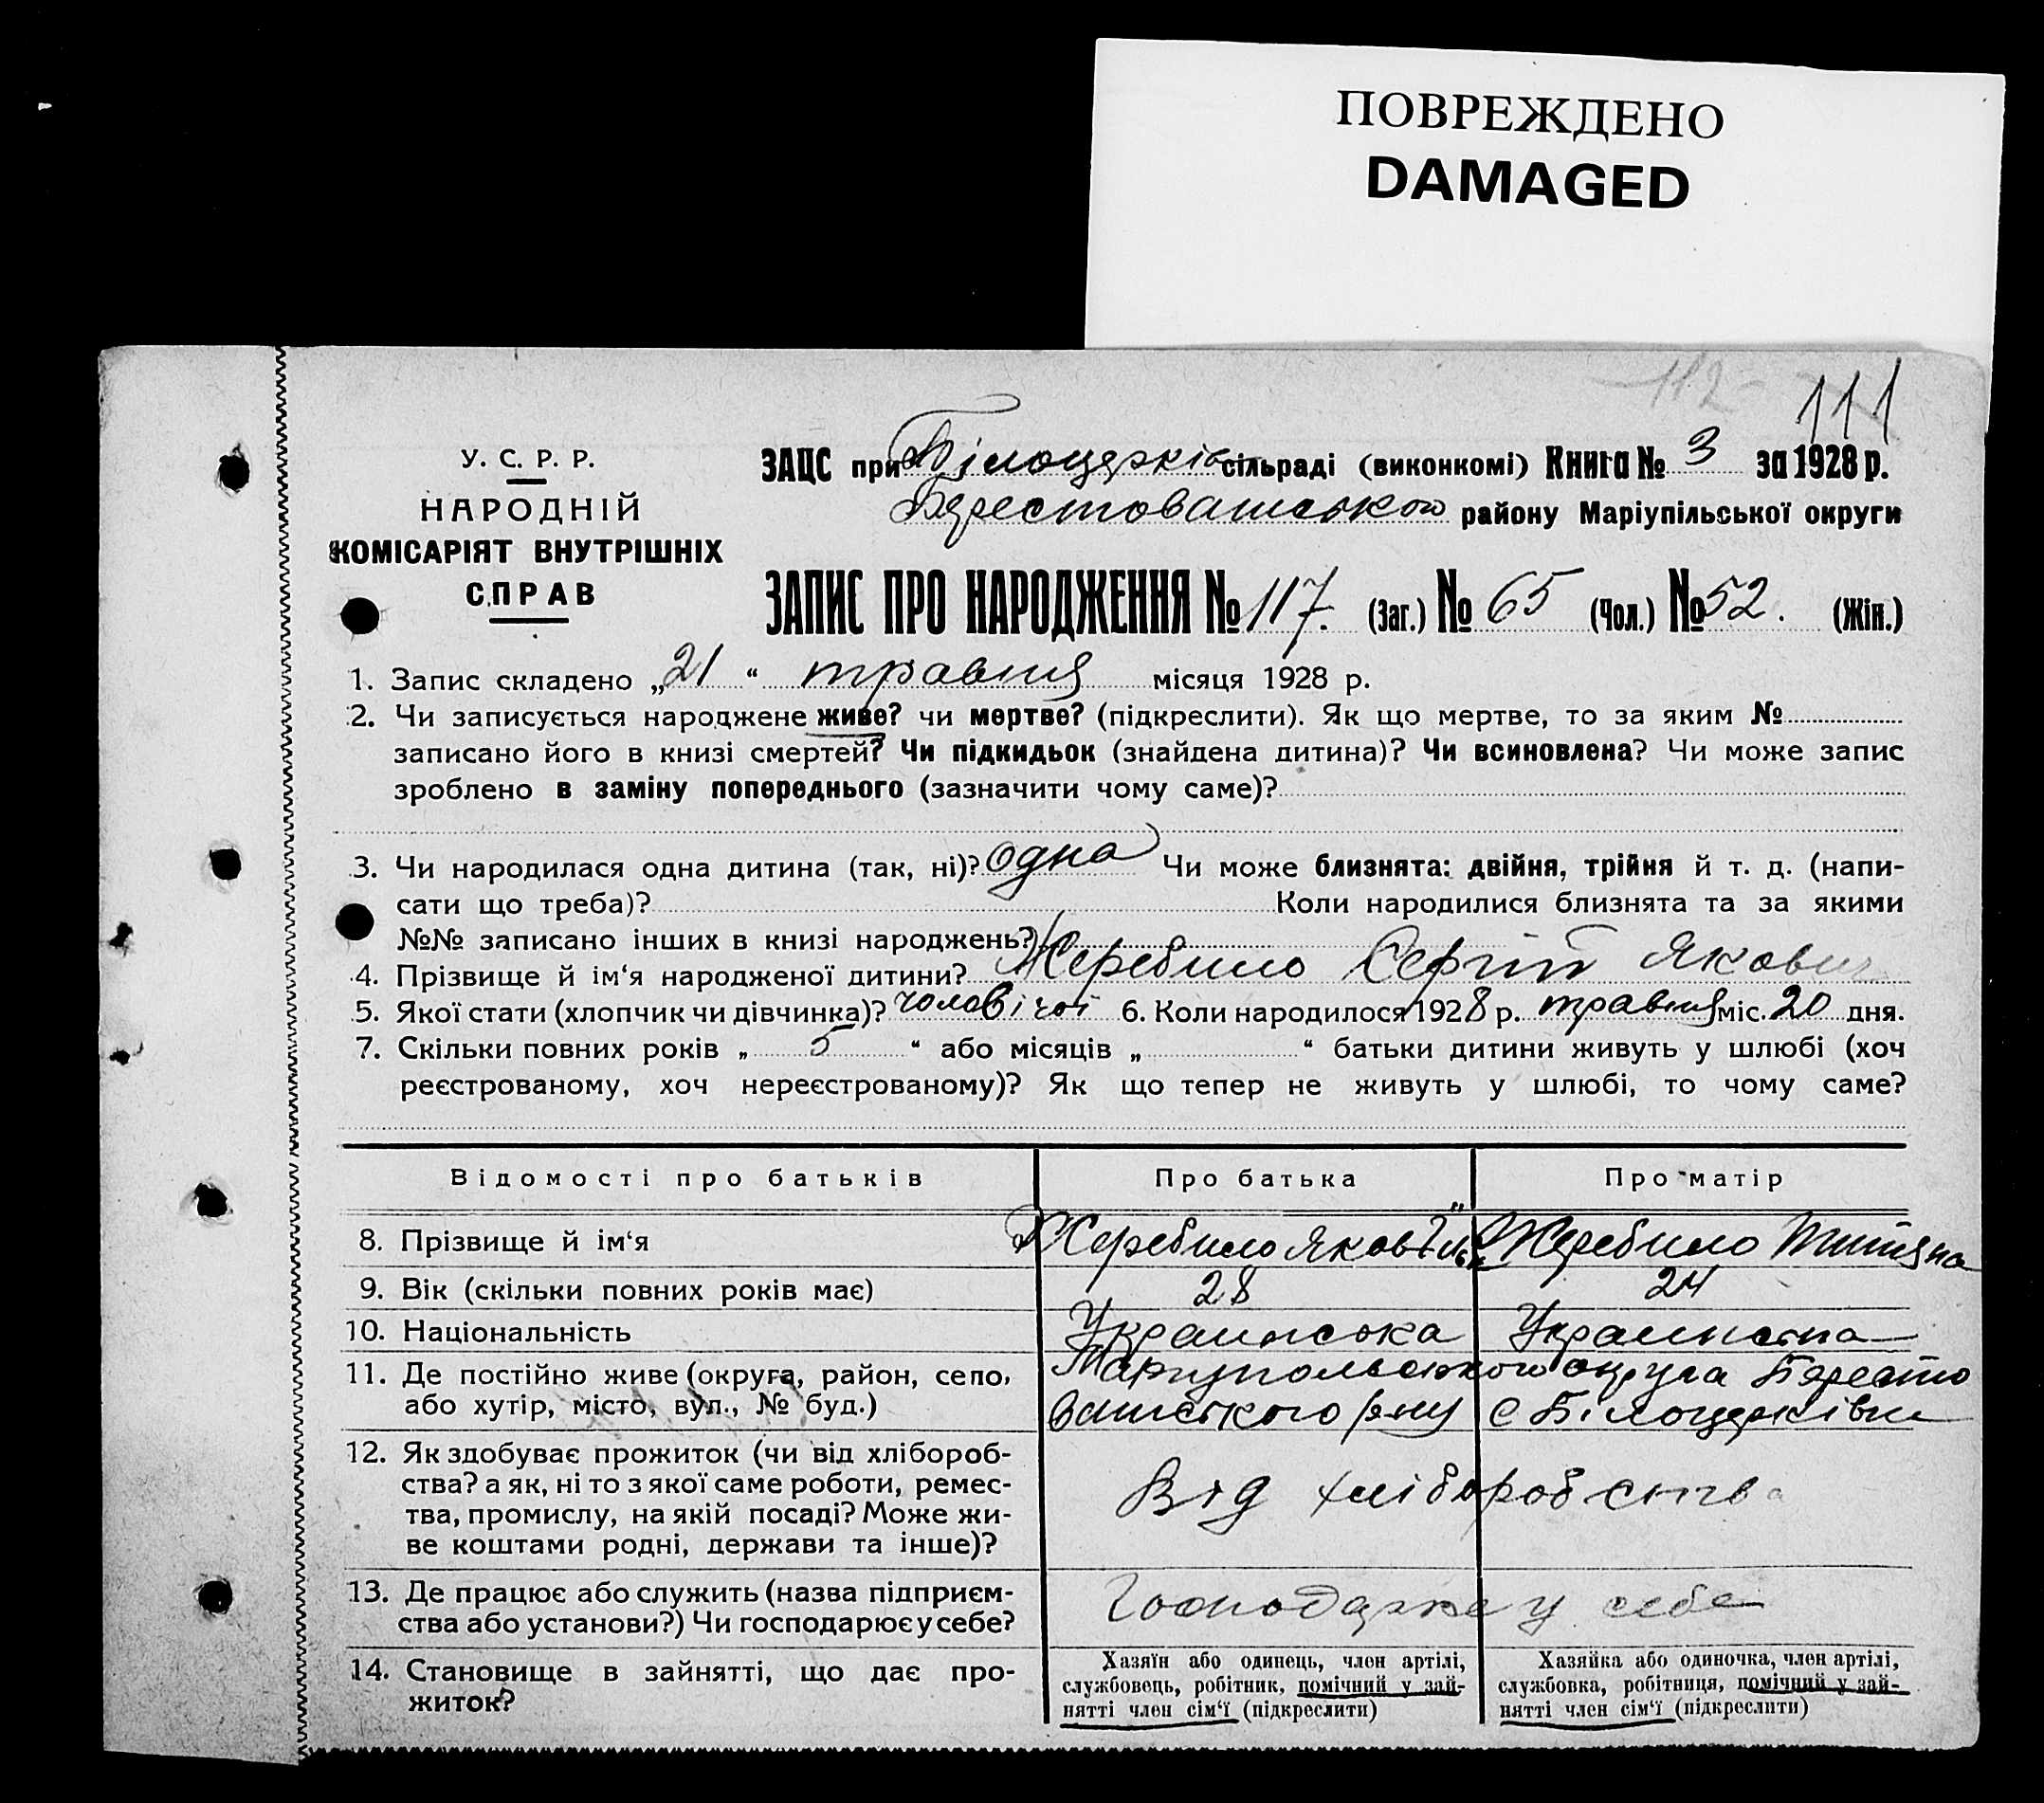 ПОВРЕЖДЕНО
DAMAGED
112
111
У. С. Р. Р.
НАРОДНІЙ
КОМІСАРІЯТ ВНУТРІШНІХ
СПРАВ
ЗАЦС при Білоцерків сільраді (виконкомі) Книга № 3 за 1928 р.
району Маріупільської округи
ЗАПИС ПРО НАРОДЖЕННЯ № 117. (Заг.) № 65 (Чол.) № 52. (Жін.)
1. Запис складено „21“ травня місяця 1928 р.
2. Чи записується народжене живе? чи мертве? (підкреслити). Як що мертве, то за яким №
записано його в книзі смертей? Чи підкидьок (знайдена дитина)? Чи всиновлена? Чи може запис
зроблено в заміну попереднього (зазначити чому саме)?
3. Чи народилася одна дитина (так, ні)? одна Чи може близнята: двійня, трійня й т. д. (напи-
сати що треба)? Коли народилися близнята та за якими
№№ записано інших в книзі народжень?
4. Прізвище й ім‘я народженої дитини? Жеребило Сергій Якович
5. Якої стати (хлопчик чи дівчинка)? чоловічої 6. Коли народилося 1928 р. травня міс. 20 дня.
7. Скільки повних років „ 5 “ або місяців „ “ батьки дитини живуть у шлюбі (хоч
реєстрованому, хоч нереєстрованому)? Як що тепер не живуть у шлюбі, то чому саме?
Відомості про батьків Про батька Про матір
8. Прізвище й ім‘я Жеребило Яков Жеребило
9. Вік (скільки повних років має) 28 24
10. Національність Украинська
11. Де постійно живе (округа, район, село,
або хутір, місто, вул., № буд.) Мариупольского округа Бересто
вансткого р-ну с Білоцерківки
12. Як здобуває прожиток (чи від хлібороб-
ства? а як, ні то з якої саме роботи, ремес-
тва, промислу, на якій посаді? Може жи-
ве коштами родні, держави та інше)?
Від хліборобства
13. Де працює або служить (назва підприєм-
ства або установи?) Чи господарює у себе?
у себе
14. Становище в зайнятті, що дає про-
житок?
Хазяїн або одинець, член артілі,
службовець, робітник, помічний у зай-
нятті член сім‘ї (підкреслити)
Хазяйка або одиночка, член артілі,
службовка, робітниця, помічний у зай-
нятті член сім‘ї (підкреслити)